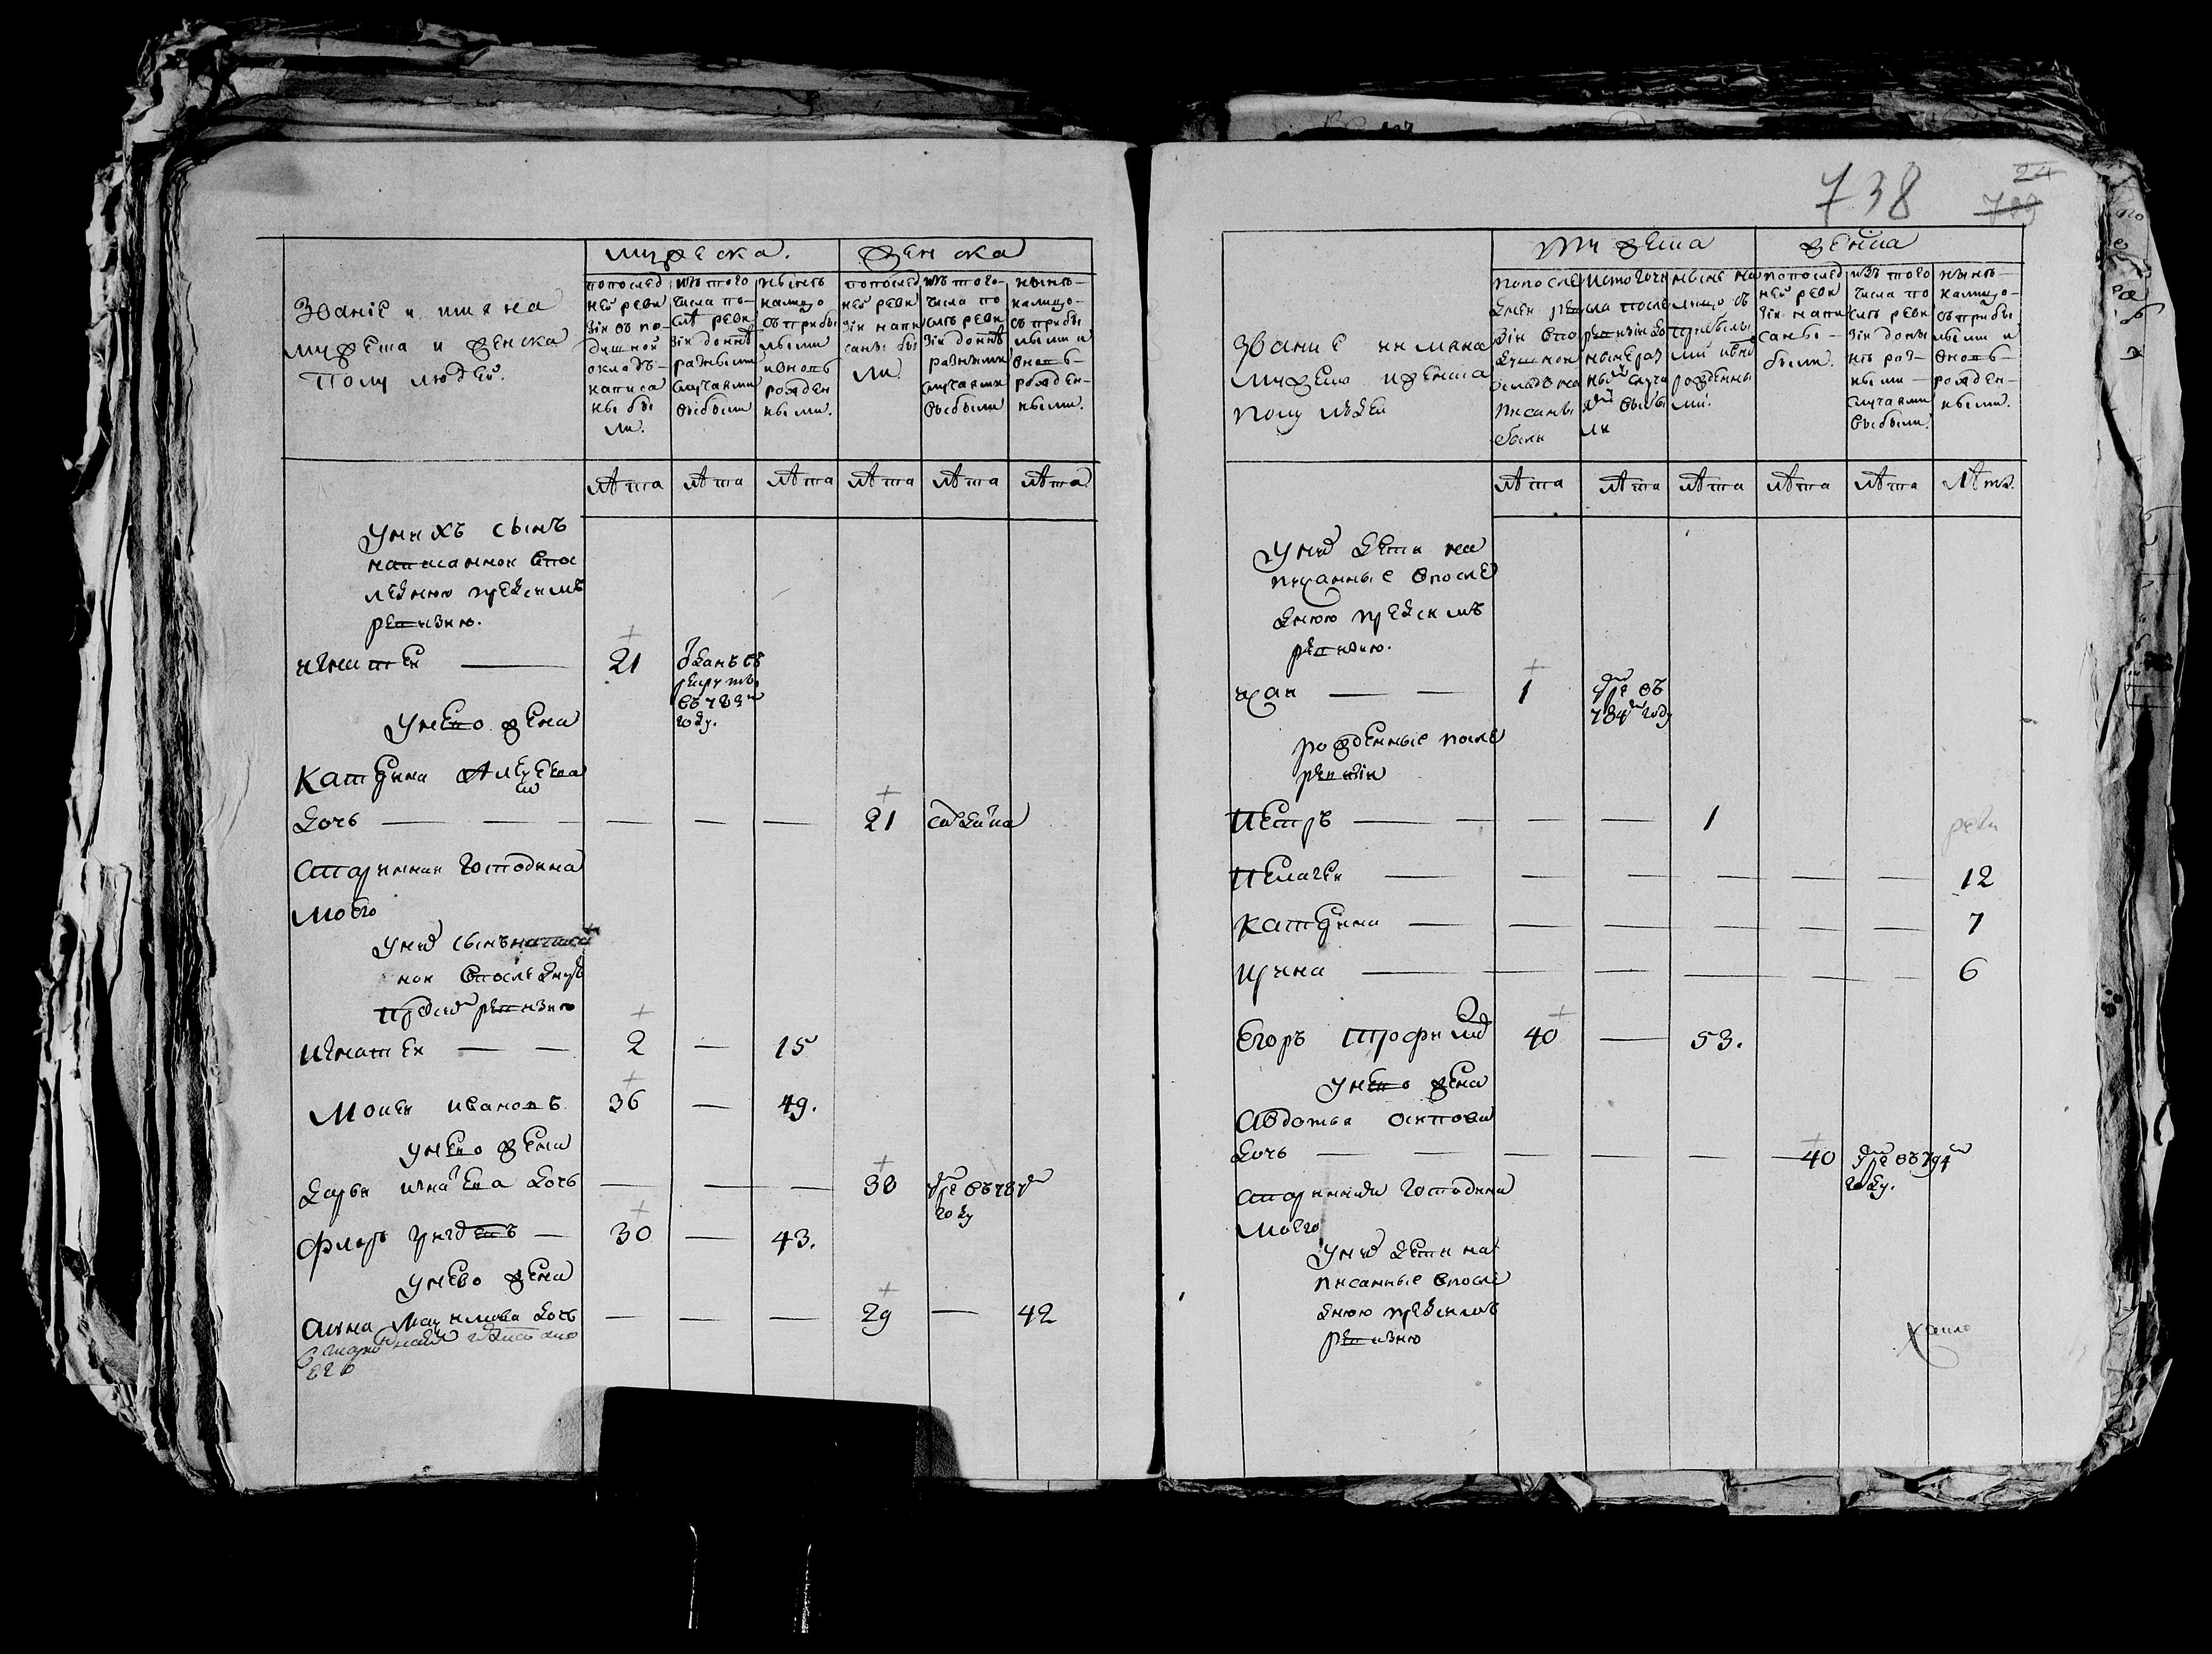 мужеска.
женска
Званiе и имяна
мужеска и женска
полу людей.
попослед
ней реви
зiи въ по
душной
окладъ
написа
ны бы
ли.
изъ того
числа по
слѣ реви
зiи до ннѣ
разными
случаями
выбыли
нынѣ
налицо
съ прибы
лыми
и вновь
рожден
ными.
попослед
ней реви
зiи напи
саны бы
ли.
изъ того
числа по
слѣ реви
зiи до ннѣ
разными
случаями
выбыли
нынѣ
налицо
съ прибы
лыми и
вновь
рожден
ными.
лѣта лѣта лѣта лѣта лѣта лѣта
у них сынъ
написанной впос
леднюю предсимъ
ревизию.
игнатей — 21 отданъ въ
рекруты
въ 783м
году.
у нево жена
Катерина Алексеева
дочь — — — — — — 21
старинная господина
моево
у них сынъ написан
ной впоследнюю
предсим ревизию
Игнатей — — 2 — 15
Мокей ивановъ 36 — 49.
у нево жена
дарья игнатева дочь — — — 38 умре въ 787м
году
Флоръ — 30 — 43.
у нево жена
анна дочь — — — 29 — 42
его
738
24
789
мужеска
женска
Званiе имяна
мужеска и женска
полу людей
попосле
дней ре
зiи впо
душной
окладъ на
писаны
были
нынѣ на
лицо съ
прибылы
ми и вно
рожденны
ми.
попослед
ней реви
зiи напи
саны
были.
изъ того
числа по
слѣ реви
зiи до ны
нѣ раз
ными
случаями
выбыли.
нынѣ
налицо
съ прибы
лыми и
вновь
рожден
ными.
лѣта лѣта лѣта лѣта лѣта лѣта.
у них дети на
писанные впосле
днюю предсимъ
ревизию.
исаи — — 1 умре въ
784м году
рожденные после
ревизiи
Петръ — — — — 1
Пелагея — — — — — — 12
Катерина — — — — — — — 7
Ирина — — — — — — 6
Егоръ трофимов 40 — 53.
у нево жена
Авдотья осипова
дочь — — — — — — 40 умре въ 794м
году.
старинная господина
моево
у них дети на
писанные впосле
днюю предсимъ
ревизию